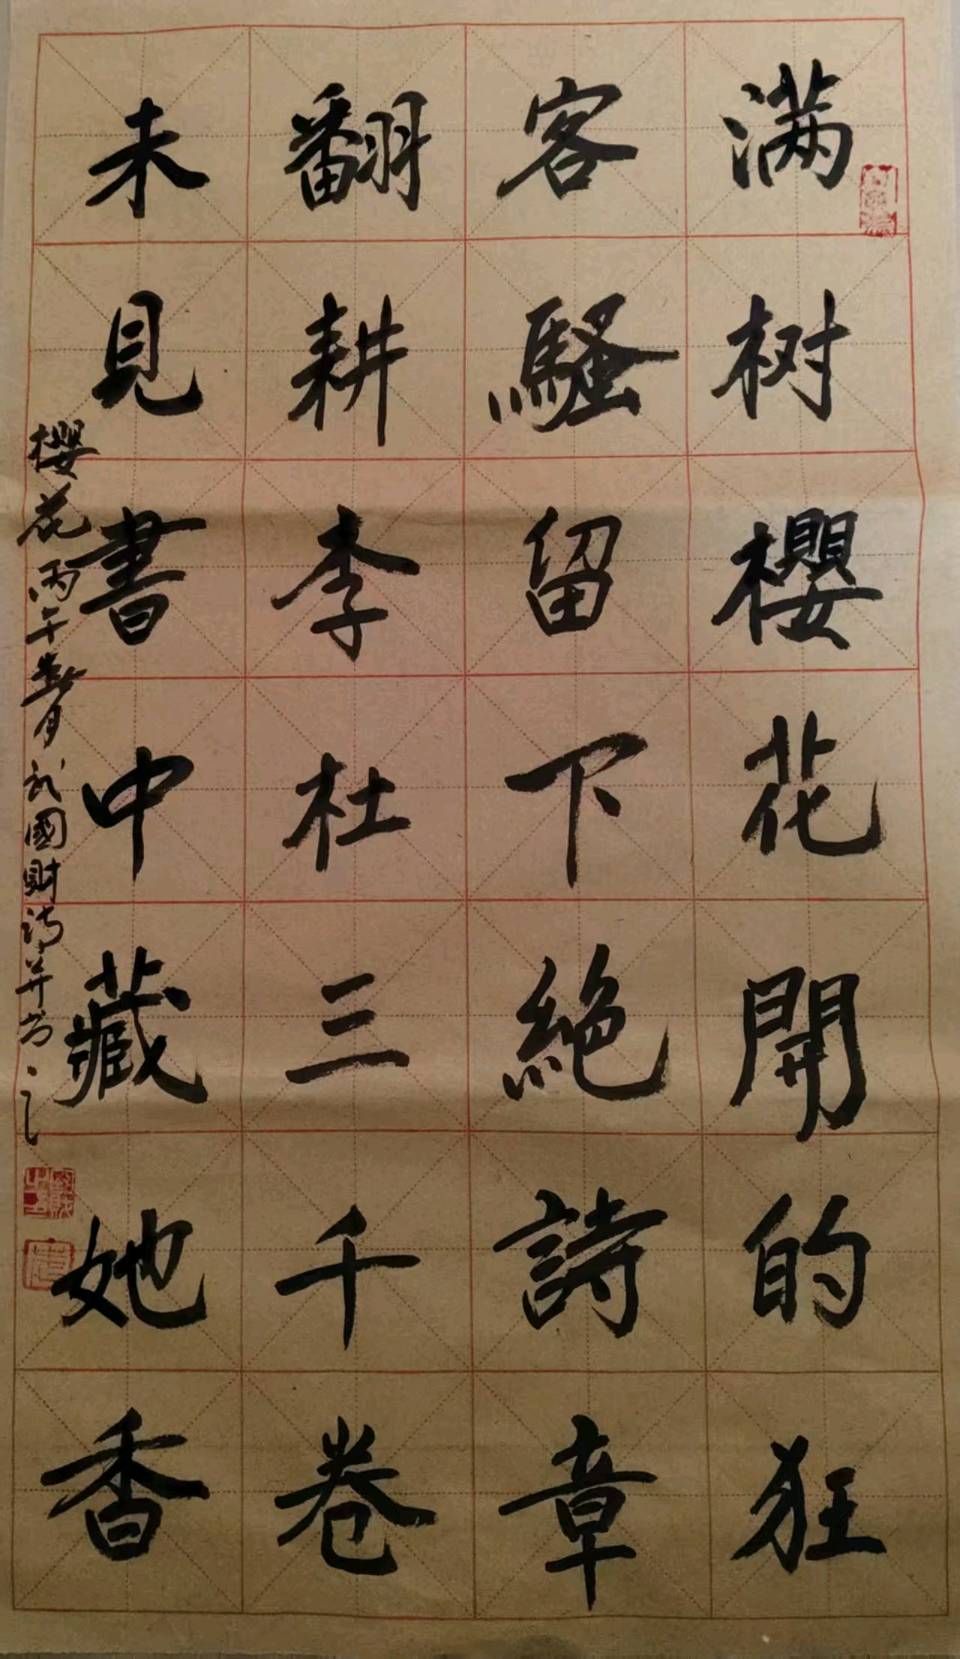 满树櫻花開的狂
客騷留下絕詩章
翻耕李杜三千卷
未見書中藏她香
櫻花丙午春月 國財詩并书